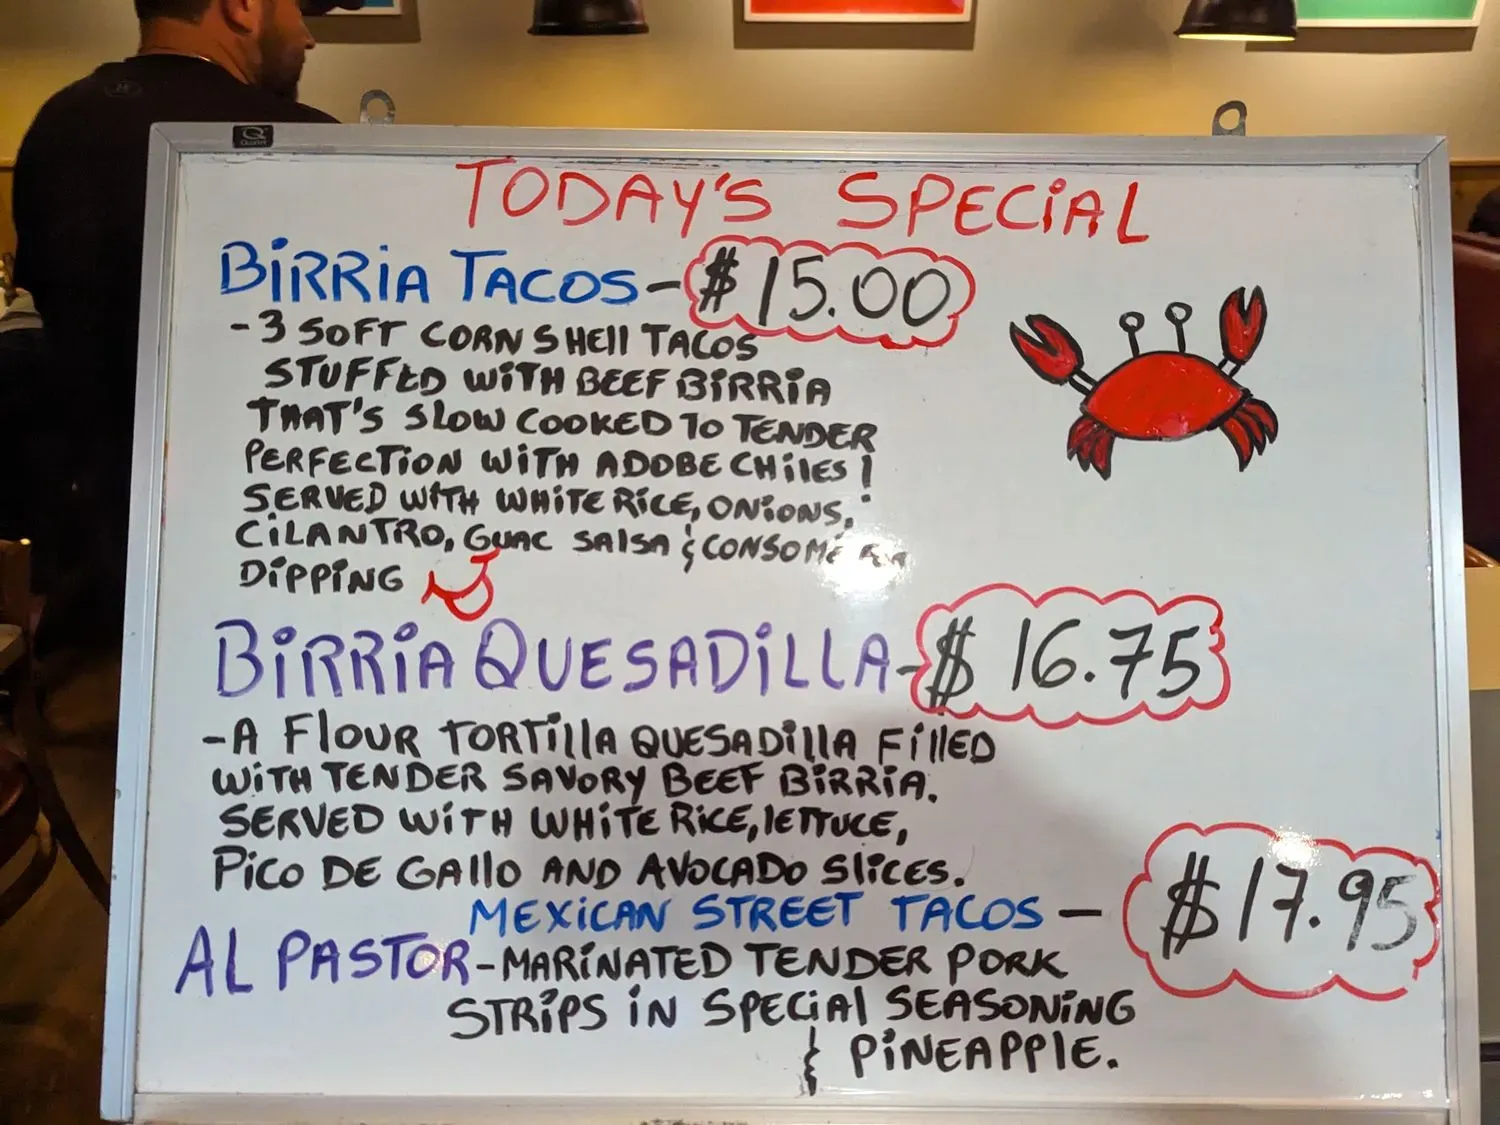 TODAY'S SPECIAL
BIRRIA TACOS - $15.00
- 3 SOFT CORN SHELL TACOS
STUFFED WITH BEEF BIRRIA
THAT'S SLOW COOKED TO TENDER
PERFECTION WITH ADOBE CHILES!
SERVED WITH WHITE RICE, ONIONS,
CILANTRO, GUAC SALSA & CONSOME
DIPPING
BIRRIA QUESADILLA - $16.75
- A FLOUR TORTILLA QUESADILLA FILLED
WITH TENDER SAVORY BEEF BIRRIA.
SERVED WITH WHITE RICE, LETTUCE,
PICO DE GALLO AND AVOCADO SLICES.
MEXICAN STREET TACOS - $17.95
AL PASTOR - MARINATED TENDER PORK
STRIPS IN SPECIAL SEASONING
& PINEAPPLE.